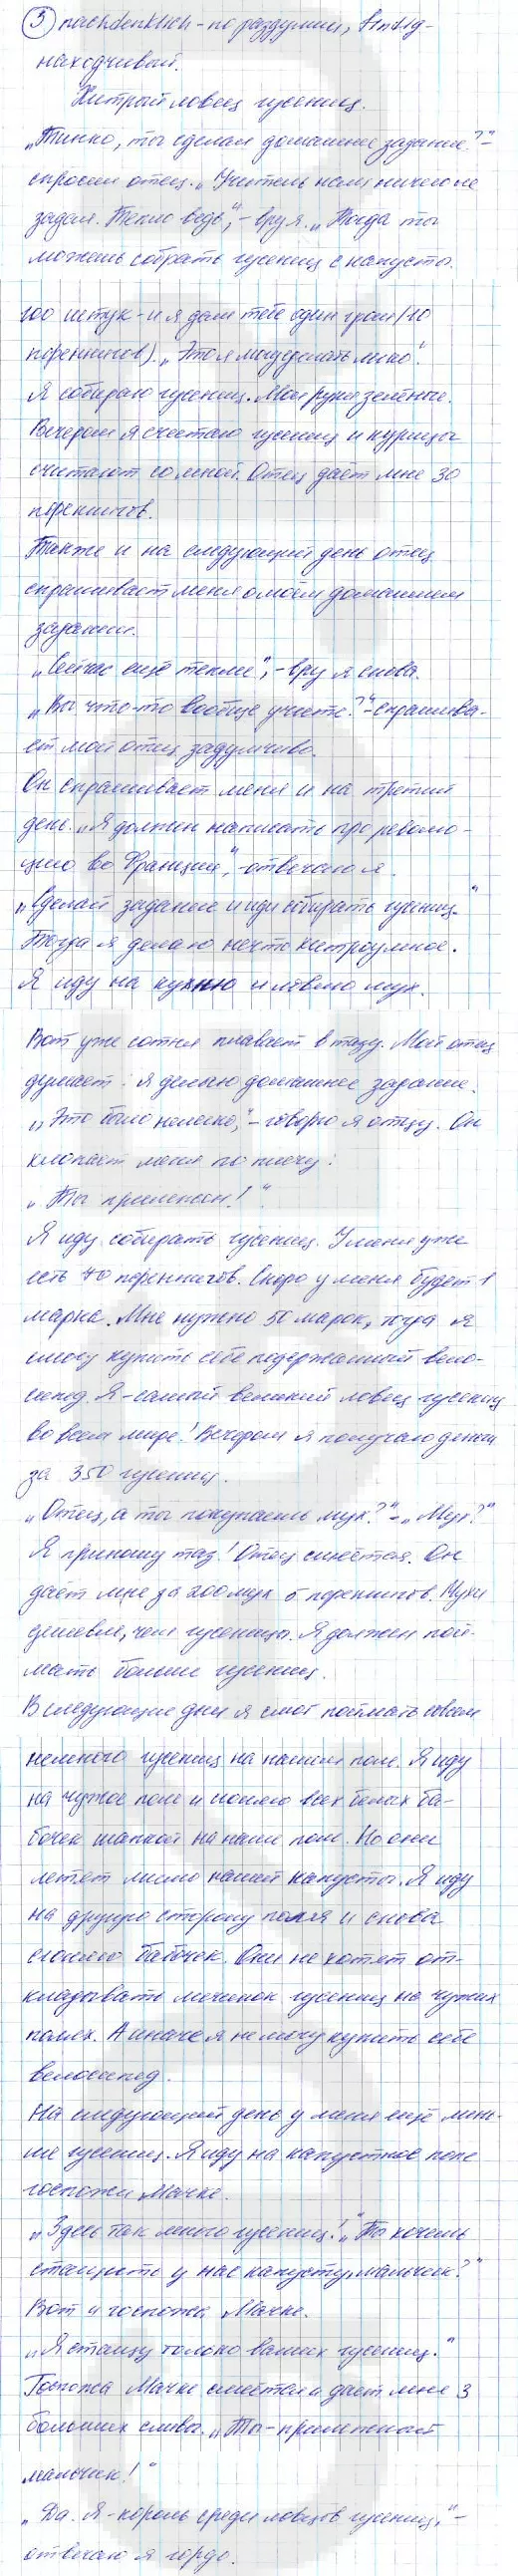 ③ nachdenklich - по раздумии, findig -
находчивый.
Хитрый ловец гусениц.
„Тинко, ты сделал домашнее задание?" -
спросил отец. „Учитель нам ничего не
задал. Тепло ведь", - вру я. „Тогда ты
можешь собрать гусениц с капусты.
100 штук - и я дам тебе один грош (10
пфеннигов). „Это я могу сделать легко".
Я собираю гусениц. Мои руки зелёные.
Вечером я считаю гусениц и курицы
считают со мной. Отец даёт мне 30
пфеннигов.
Также и на следующий день отец
спрашивает меня о моём домашнем
задании.
„Сейчас ещё теплее", - вру я снова.
„Вы что-то вообще учите?" - спрашива-
ет мой отец задумчиво.
Он спрашивает меня и на третий
день. „Я должен написать про револю-
цию во Франции", - отвечаю я.
„Сделай задание и иди собирать гусениц."
Тогда я делаю нечто хитроумное.
Я иду на кухню и ловлю мух.
Вот уже сотня плавает в тазу. Мой отец
думает: я делаю домашнее задание.
„Это было нелегко," - говорю я отцу. Он
хлопает меня по плечу:
„Ты прилежен!"
Я иду собирать гусениц. У меня уже
есть 70 пфеннигов. Скоро у меня будет 1
марка. Мне нужно 50 марок, тогда я
смогу купить себе подержанный вело-
сипед. Я - самый великий ловец гусениц
во всем мире! Вечером я получаю деньги
за 350 гусениц.
„Отец, а ты покупаешь мух?" - „Мух?"
Я приношу таз! Отец смеётся. Он
даёт мне за 200 мух 5 пфеннигов. Мухи
дешевле, чем гусеницы. Я должен пой-
мать больше гусениц.
В следующие дни я смог поймать совсем
немного гусениц на нашем поле. Я иду
на чужое поле и гоняю всех белых ба-
бочек шапкой на наше поле. Но они
летят мимо нашей капусты. Я иду
на другую сторону поля и снова
сгоняю бабочек. Они не хотят от-
кладывать личинок гусениц на чужих
полях. А иначе я не могу купить себе
велосипед.
На следующий день у меня ещё мень-
ше гусениц. Я иду на капустное поле
госпожи Мачке.
„Здесь так много гусениц!" „Ты хочешь
стащить у нас капусту, мальчик?"
Вот и госпожа Мачке.
„Я стащу только ваших гусениц."
Госпожа Мачке смеётся и даёт мне 3
больших сливы. „Ты - прилежный
мальчик!"
„Да. Я - король среди ловцов гусениц," -
отвечаю я гордо.